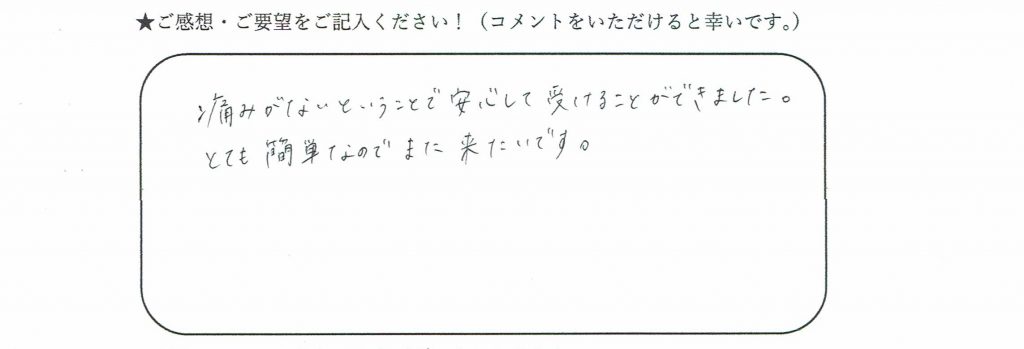 ★ご感想・ご要望をご記入ください！（コメントをいただけると幸いです。）
痛みがないということで安心して受けることができました。
とても簡単なのでまた来たいです。